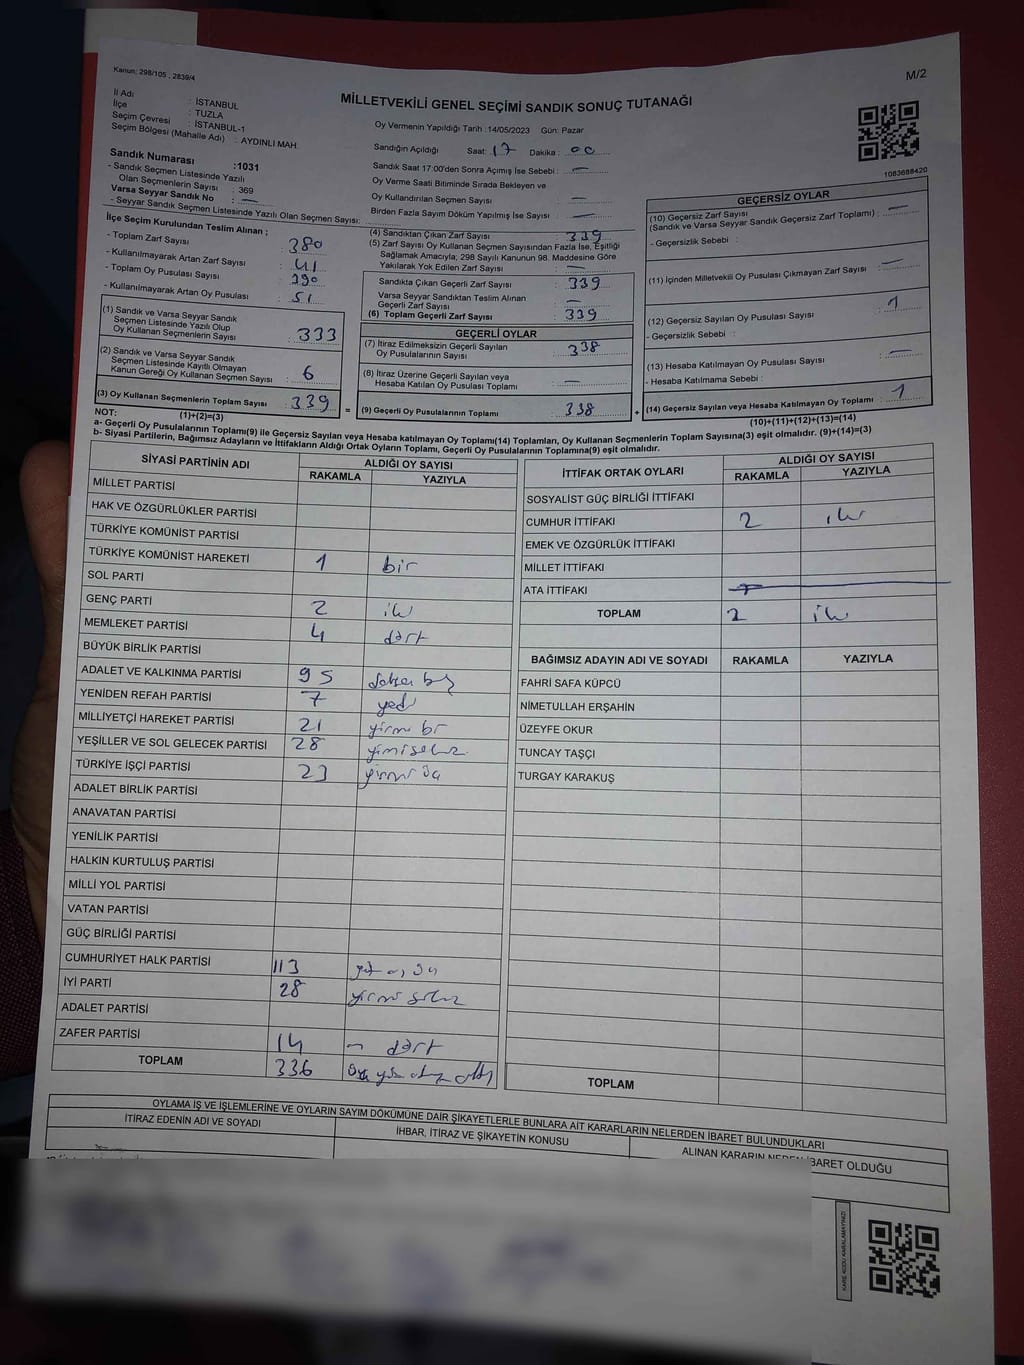 Kanun: 298/105 , 2839/4
M/2
MİLLETVEKİLİ GENEL SEÇİMİ SANDIK SONUÇ TUTANAĞI
İl Adı : İSTANBUL
İlçe : TUZLA
Seçim Çevresi : İSTANBUL-1
Seçim Bölgesi (Mahalle Adı) : AYDINLI MAH.
Sandık Numarası :1031
- Sandık Seçmen Listesinde Yazılı
Olan Seçmenlerin Sayısı : 369
Varsa Seyyar Sandık No : —
- Seyyar Sandık Seçmen Listesinde Yazılı Olan Seçmen Sayısı: —
Oy Vermenin Yapıldığı Tarih :14/05/2023 Gün: Pazar
Sandığın Açıldığı Saat: 17 Dakika : 00
Sandık Saat 17:00'den Sonra Açımış İse Sebebi : —
Oy Verme Saati Bitiminde Sırada Bekleyen ve
Oy Kullandırılan Seçmen Sayısı : —
Birden Fazla Sayım Döküm Yapılmış İse Sayısı : —
1083688420
İlçe Seçim Kurulundan Teslim Alınan ;
- Toplam Zarf Sayısı : 380
- Kullanılmayarak Artan Zarf Sayısı : 41
- Toplam Oy Pusulası Sayısı : 390
- Kullanılmayarak Artan Oy Pusulası : 51
(1) Sandık ve Varsa Seyyar Sandık
Seçmen Listesinde Yazılı Olup
Oy Kullanan Seçmenlerin Sayısı : 333
(2) Sandık ve Varsa Seyyar Sandık
Seçmen Listesinde Kayıtlı Olmayan
Kanun Gereği Oy Kullanan Seçmen Sayısı : 6
(3) Oy Kullanan Seçmenlerin Toplam Sayısı : 339 =
(4) Sandıktan Çıkan Zarf Sayısı : 339
(5) Zarf Sayısı Oy Kullanan Seçmen Sayısından Fazla İse, Eşitliği
Sağlamak Amacıyla; 298 Sayılı Kanunun 98. Maddesine Göre
Yakılarak Yok Edilen Zarf Sayısı : —
Sandıkta Çıkan Geçerli Zarf Sayısı : 339
Varsa Seyyar Sandıktan Teslim Alınan
Geçerli Zarf Sayısı : —
(6) Toplam Geçerli Zarf Sayısı : 339
GEÇERLİ OYLAR
(7) İtiraz Edilmeksizin Geçerli Sayılan
Oy Pusulalarının Sayısı : 338
(8) İtiraz Üzerine Geçerli Sayılan veya
Hesaba Katılan Oy Pusulası Toplamı : —
(9) Geçerli Oy Pusulalarının Toplamı : 338 +
GEÇERSİZ OYLAR
(10) Geçersiz Zarf Sayısı
(Sandık ve Varsa Seyyar Sandık Geçersiz Zarf Toplamı) : —
- Geçersizlik Sebebi :
(11) İçinden Milletvekili Oy Pusulası Çıkmayan Zarf Sayısı : —
(12) Geçersiz Sayılan Oy Pusulası Sayısı : 1
- Geçersizlik Sebebi :
(13) Hesaba Katılmayan Oy Pusulası Sayısı : —
- Hesaba Katılmama Sebebi :
(14) Geçersiz Sayılan veya Hesaba Katılmayan Oy Toplamı : 1
NOT: (1)+(2)=(3)
(10)+(11)+(12)+(13)=(14)
a- Geçerli Oy Pusulalarının Toplamı(9) ile Geçersiz Sayılan veya Hesaba katılmayan Oy Toplamı(14) Toplamları, Oy Kullanan Seçmenlerin Toplam Sayısına(3) eşit olmalıdır. (9)+(14)=(3)
b- Siyasi Partilerin, Bağımsız Adayların ve İttifakların Aldığı Ortak Oyların Toplamı, Geçerli Oy Pusulalarının Toplamına(9) eşit olmalıdır.
SİYASİ PARTİNİN ADI ALDIĞI OY SAYISI
RAKAMLA YAZIYLA
MİLLET PARTİSİ
HAK VE ÖZGÜRLÜKLER PARTİSİ
TÜRKİYE KOMÜNİST PARTİSİ
TÜRKİYE KOMÜNİST HAREKETİ 1 bir
SOL PARTİ
GENÇ PARTİ 2 iki
MEMLEKET PARTİSİ 4 dört
BÜYÜK BİRLİK PARTİSİ
ADALET VE KALKINMA PARTİSİ 95
YENİDEN REFAH PARTİSİ 7 yedi
MİLLİYETÇİ HAREKET PARTİSİ 21 yirmi bir
YEŞİLLER VE SOL GELECEK PARTİSİ 28 yirmi sekiz
TÜRKİYE İŞÇİ PARTİSİ 23 yirmi üç
ADALET BİRLİK PARTİSİ
ANAVATAN PARTİSİ
YENİLİK PARTİSİ
HALKIN KURTULUŞ PARTİSİ
MİLLİ YOL PARTİSİ
VATAN PARTİSİ
GÜÇ BİRLİĞİ PARTİSİ
CUMHURİYET HALK PARTİSİ 113 yüz on üç
İYİ PARTİ 28 yirmi sekiz
ADALET PARTİSİ
ZAFER PARTİSİ 14 on dört
TOPLAM 336 üç yüz otuz altı
İTTİFAK ORTAK OYLARI ALDIĞI OY SAYISI
RAKAMLA YAZIYLA
SOSYALİST GÜÇ BİRLİĞİ İTTİFAKI
CUMHUR İTTİFAKI 2 iki
EMEK VE ÖZGÜRLÜK İTTİFAKI
MİLLET İTTİFAKI
ATA İTTİFAKI
TOPLAM 2 iki
BAĞIMSIZ ADAYIN ADI VE SOYADI RAKAMLA YAZIYLA
FAHRİ SAFA KÜPCÜ
NİMETULLAH ERŞAHİN
ÜZEYFE OKUR
TUNCAY TAŞÇI
TURGAY KARAKUŞ
TOPLAM
OYLAMA İŞ VE İŞLEMLERİNE VE OYLARIN SAYIM DÖKÜMÜNE DAİR ŞİKAYETLERLE BUNLARA AİT KARARLARIN NELERDEN İBARET BULUNDUKLARI
İTİRAZ EDENİN ADI VE SOYADI
İHBAR, İTİRAZ VE ŞİKAYETİN KONUSU
ALINAN KARARIN NEDEN İBARET OLDUĞU
KARE KODU KARALAMAYINIZ!